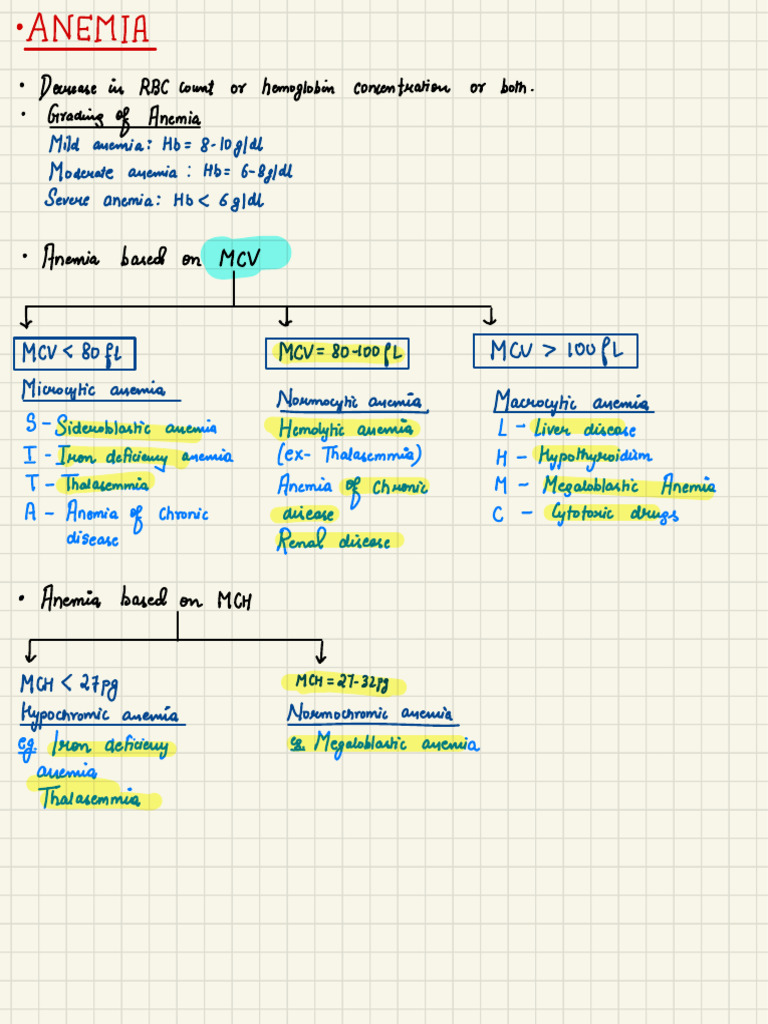 • ANEMIA
• Decrease in RBC count or hemoglobin concentration or both.
• Grading of Anemia
Mild anemia: Hb = 8-10g/dl
Moderate anemia: Hb = 6-8g/dl
Severe anemia: Hb < 6g/dl
• Anemia based on MCV
MCV < 80 fL
Microcytic anemia
S - Sideroblastic anemia
I - Iron deficiency anemia
T - Thalasemmia
A - Anemia of chronic
disease
MCV = 80-100 fL
Normocytic anemia
Hemolytic anemia
(ex- Thalasemmia)
Anemia of chronic
disease
Renal disease
MCV > 100 fL
Macrocytic anemia
L - Liver disease
H - Hypothyroidium
M - Megaloblastic Anemia
C - Cytotoxic drugs
• Anemia based on MCH
MCH < 27pg
Hypochromic anemia
eg. Iron deficiency
anemia
Thalasemmia
MCH = 27-32pg
Normochromic anemia
eg. Megaloblastic anemia